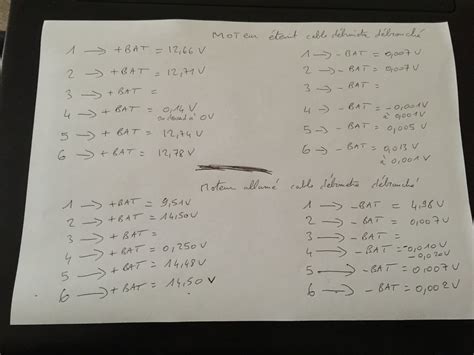 Moteur éteint cable débimetre débranché
1 → +BAT = 12,66 V
2 → +BAT = 12,71 V
3 → +BAT =
4 → +BAT = 0,14 V
à 0V
5 → +BAT = 12,74 V
6 → +BAT = 12,78 V
1 → -BAT = 0,007 V
2 → -BAT = 0,007 V
3 → -BAT =
4 → -BAT = -0,001 V
à 0,001 V
5 → -BAT = 0,005 V
6 → -BAT = 0,013 V
à 0,001 V
Moteur allumé cable débimetre débranché
1 → +BAT = 9,51 V
2 → +BAT = 14,50 V
3 → +BAT =
4 → +BAT = 0,250 V
5 → +BAT = 14,48 V
6 → +BAT = 14,50 V
1 → -BAT = 4,96 V
2 → -BAT = 0,007 V
3 → -BAT =
4 → -BAT = -0,010 V
-0,020 V
5 → -BAT = 0,007 V
6 → -BAT = 0,002 V